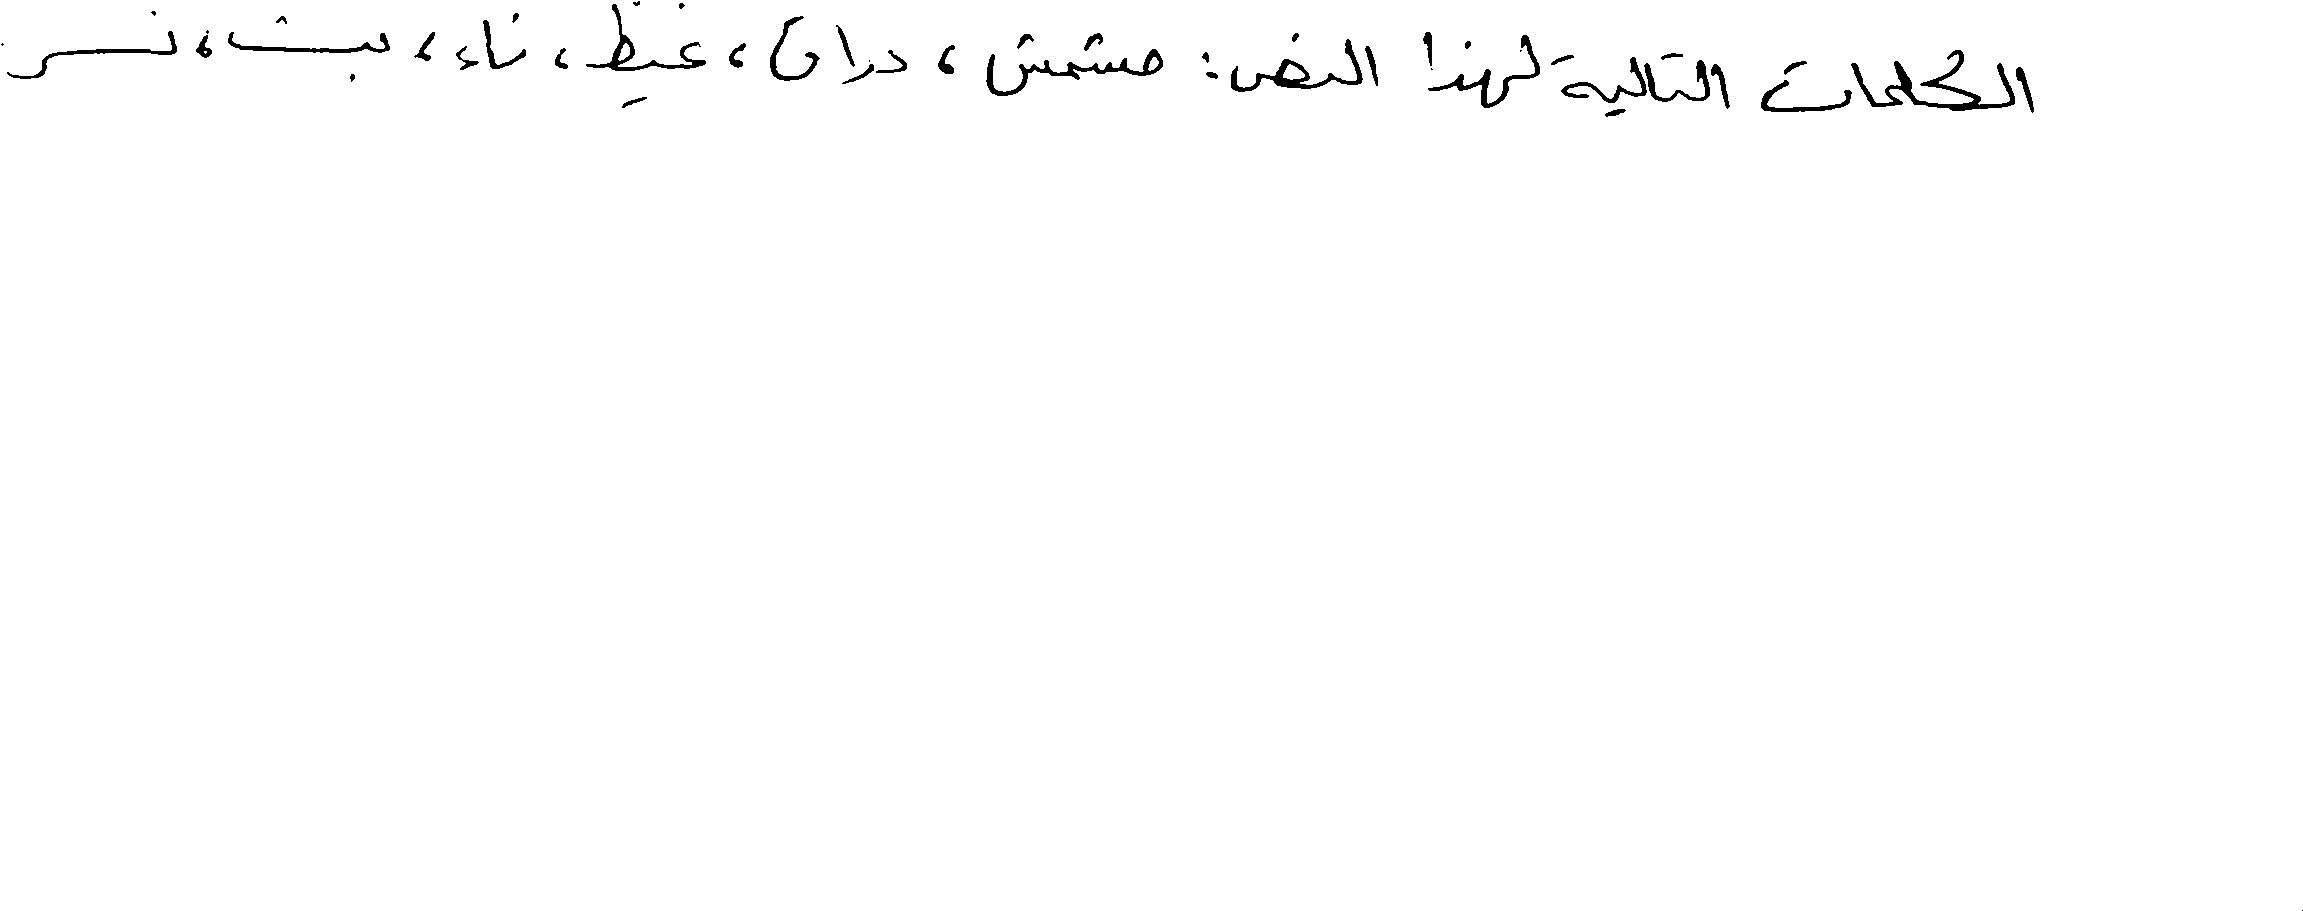 الكلمات التالية لهذا النص: مشمش، دراق، غيظ، ناء، بث، نسر